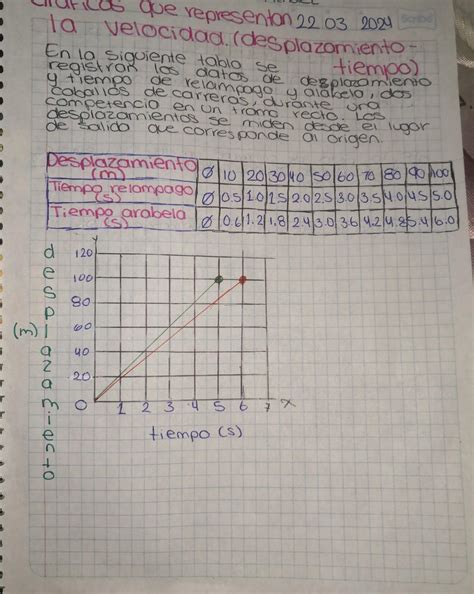 Gráficas que representan 22 03 2024
la velocidad. (desplazamiento-
tiempo)
En la siguiente tabla se
registran los datos de desplazamiento
y tiempo de relampago y arabela, dos
caballos de carreras, durante una
competencia en un tramo recto. Los
desplazamientos se miden desde el lugor
de salida que corresponde al origen.
Desplazamiento (m) 0 10 20 30 40 50 60 70 80 90 100
Tiempo relampago (s) 0 0.5 1.0 1.5 2.0 2.5 3.0 3.5 4.0 4.5 5.0
Tiempo arabela (s) 0 0.6 1.2 1.8 2.4 3.0 3.6 4.2 4.8 5.4 6.0
y
120
100
80
60
40
20
0 1 2 3 4 5 6 7 x
desplazamiento
(m)
tiempo (s)